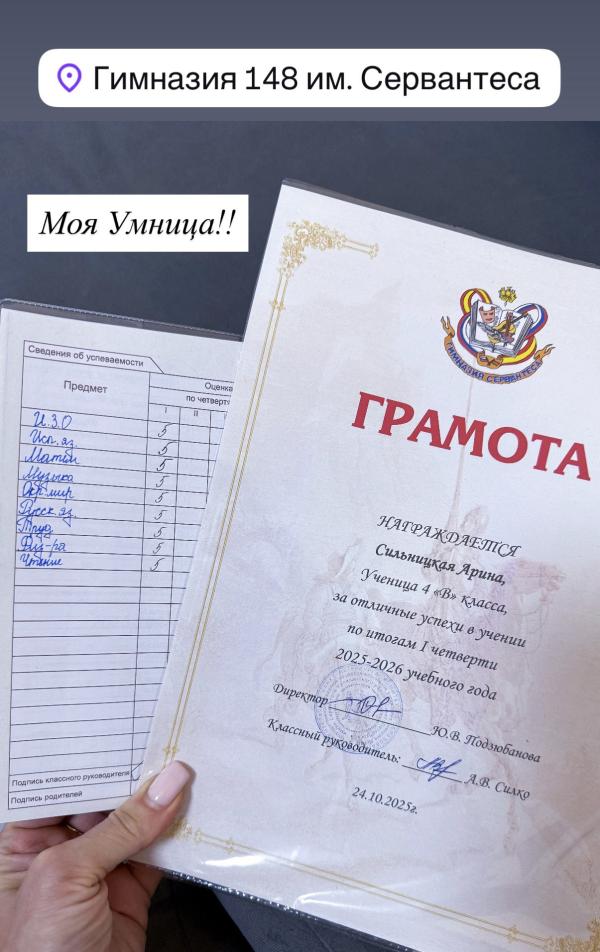 Гимназия 148 им. Сервантеса
Моя Умница!!
Сведения об успеваемости
Предмет
Оценка
по четверт
I II
И.З.О 5
Исп.яз. 5
Матем 5
Музыка 5
Окр.мир 5
Русск.яз. 5
Труд 5
Физ-ра 5
Чтение 5
Подпись классного руководителя
Подпись родителей
ГИМНАЗИЯ СЕРВАНТЕСА
ГРАМОТА
НАГРАЖДАЕТСЯ
Сильницкая Арина,
Ученица 4 «В» класса,
за отличные успехи в учении
по итогам I четверти
2025-2026 учебного года
Директор Ю.В. Подзюбанова
Классный руководитель: А.В. Силко
24.10.2025г.